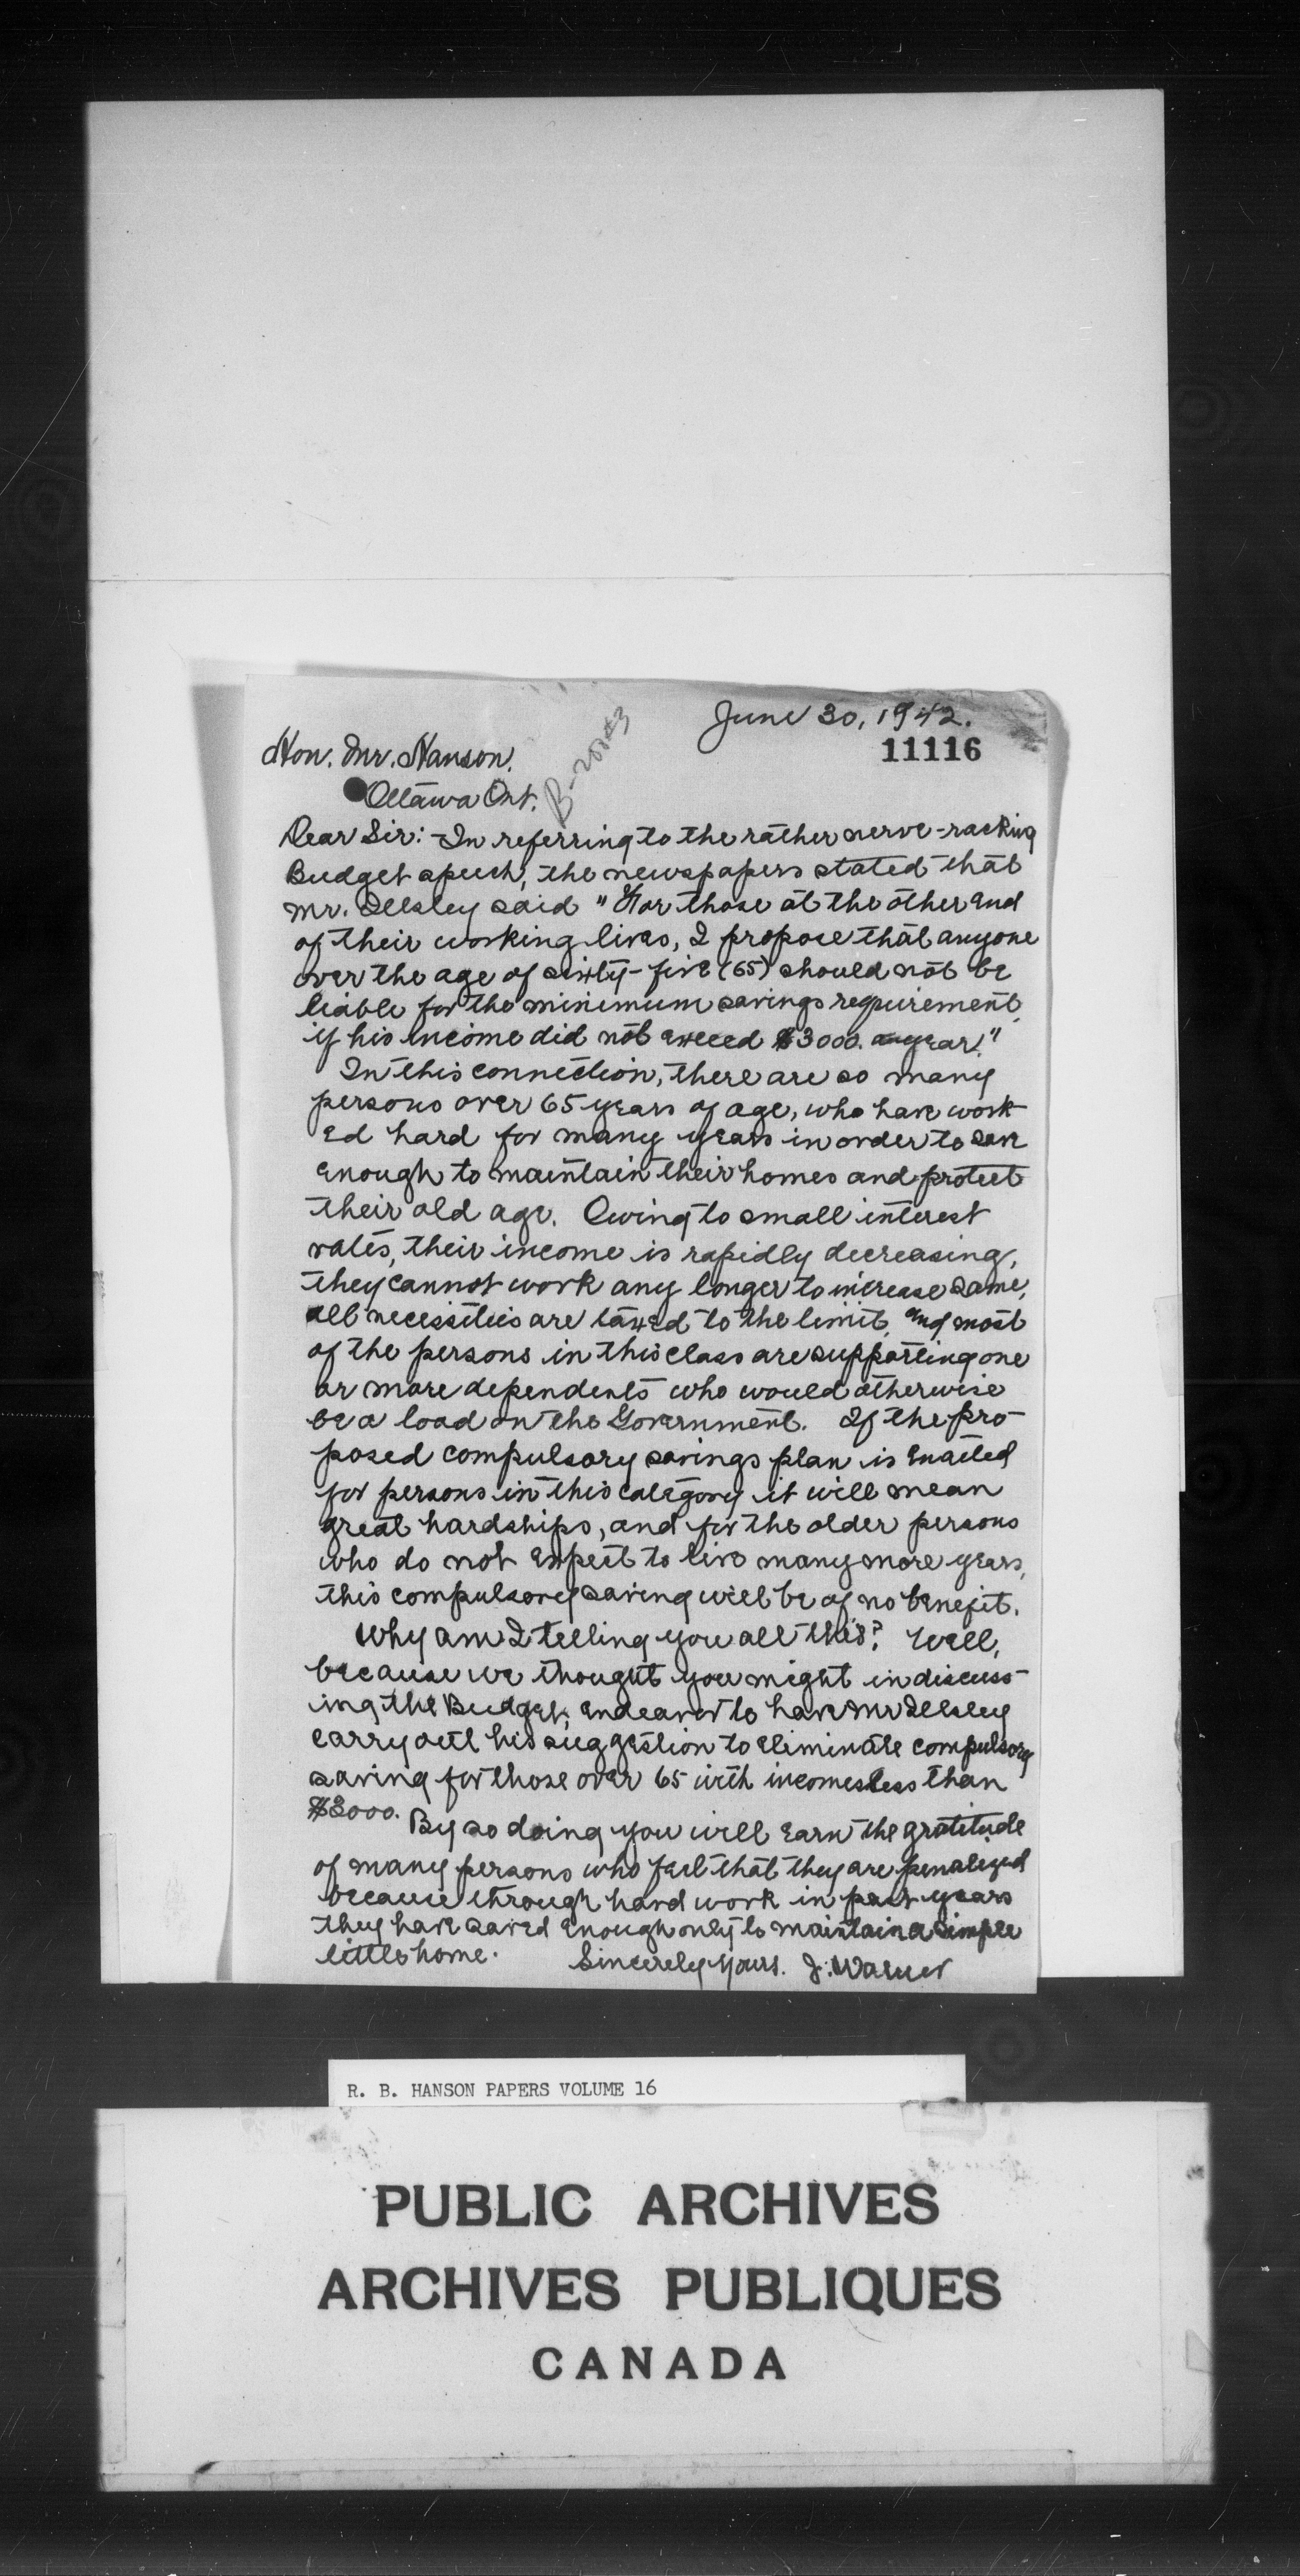 June 30, 1942.
11116
Hon. Mr. Hanson.
Ottawa Ont.
Dear Sir:- In referring to the rather nerve-racking
Budget speech, the newspapers stated that
Mr. Ilsley said "For those at the other end
of their working lives, I propose that anyone
over the age of sixty-five (65) should not be
liable for the minimum savings requirement,
if his income did not exceed $3000. a year."
In this connection, there are so many
persons over 65 years of age, who have work-
ed hard for many years in order to save
enough to maintain their homes and protect
their old age. Owing to small interest
rates, their income is rapidly decreasing,
they cannot work any longer to increase same,
all necessities are taxed to the limit, and most
of the persons in this class are supporting one
or more dependents who would otherwise
be a load on the Government. If the pro-
posed compulsory savings plan is enacted
for persons in this category it will mean
great hardships, and for the older persons
who do not expect to live many more years,
this compulsory saving will be of no benefit.
Why am I telling you all this? Well,
because we thought you might in discuss-
ing the Budget, endeavor to have Mr Ilsley
carry out his suggestion to eliminate compulsory
saving for those over 65 with incomes less than
$3000. By so doing you will earn the gratitude
of many persons who feel that they are penalized
because through hard work in past years
they have saved enough only to maintain a simple
little home. Sincerely Yours. J. Warner
R. B. HANSON PAPERS VOLUME 16
PUBLIC ARCHIVES
ARCHIVES PUBLIQUES
CANADA